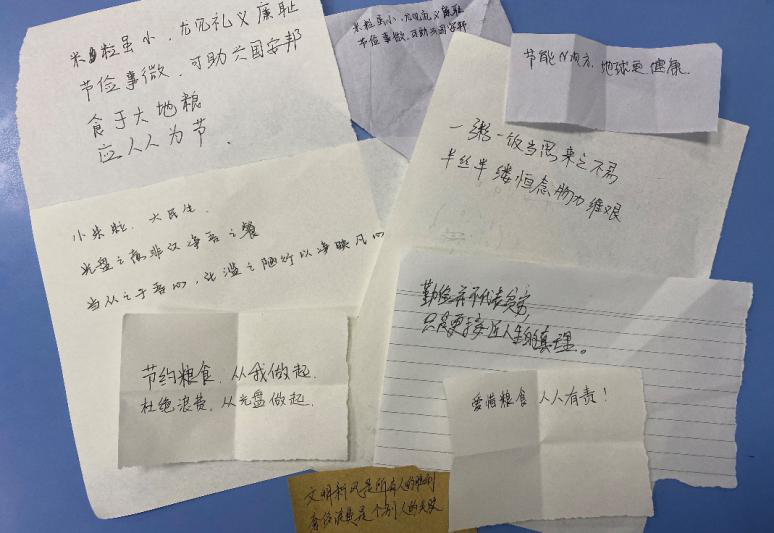 米粒虽小，尤见礼义廉耻
节俭事微，可助兴国安邦
食于大地粮
应人人为节．
米粒虽小，尤见礼义廉耻
节俭事微，可助兴国安邦
节能　　，地球更健康．
一粥一饭当思来之不易
半丝半缕恒念物力维艰
小米粒，大民生．
光盘之　非仅净吾之餐
当从之于吾心，　滥之陋　以净　凡心
勤俭并不代表贫穷，
只是更接近人生的真理。
节约粮食，从我做起．
杜绝浪费，从光盘做起．
爱惜粮食 人人有责！
文明新风是所有人的胜利
奢侈浪费是个别人的失败